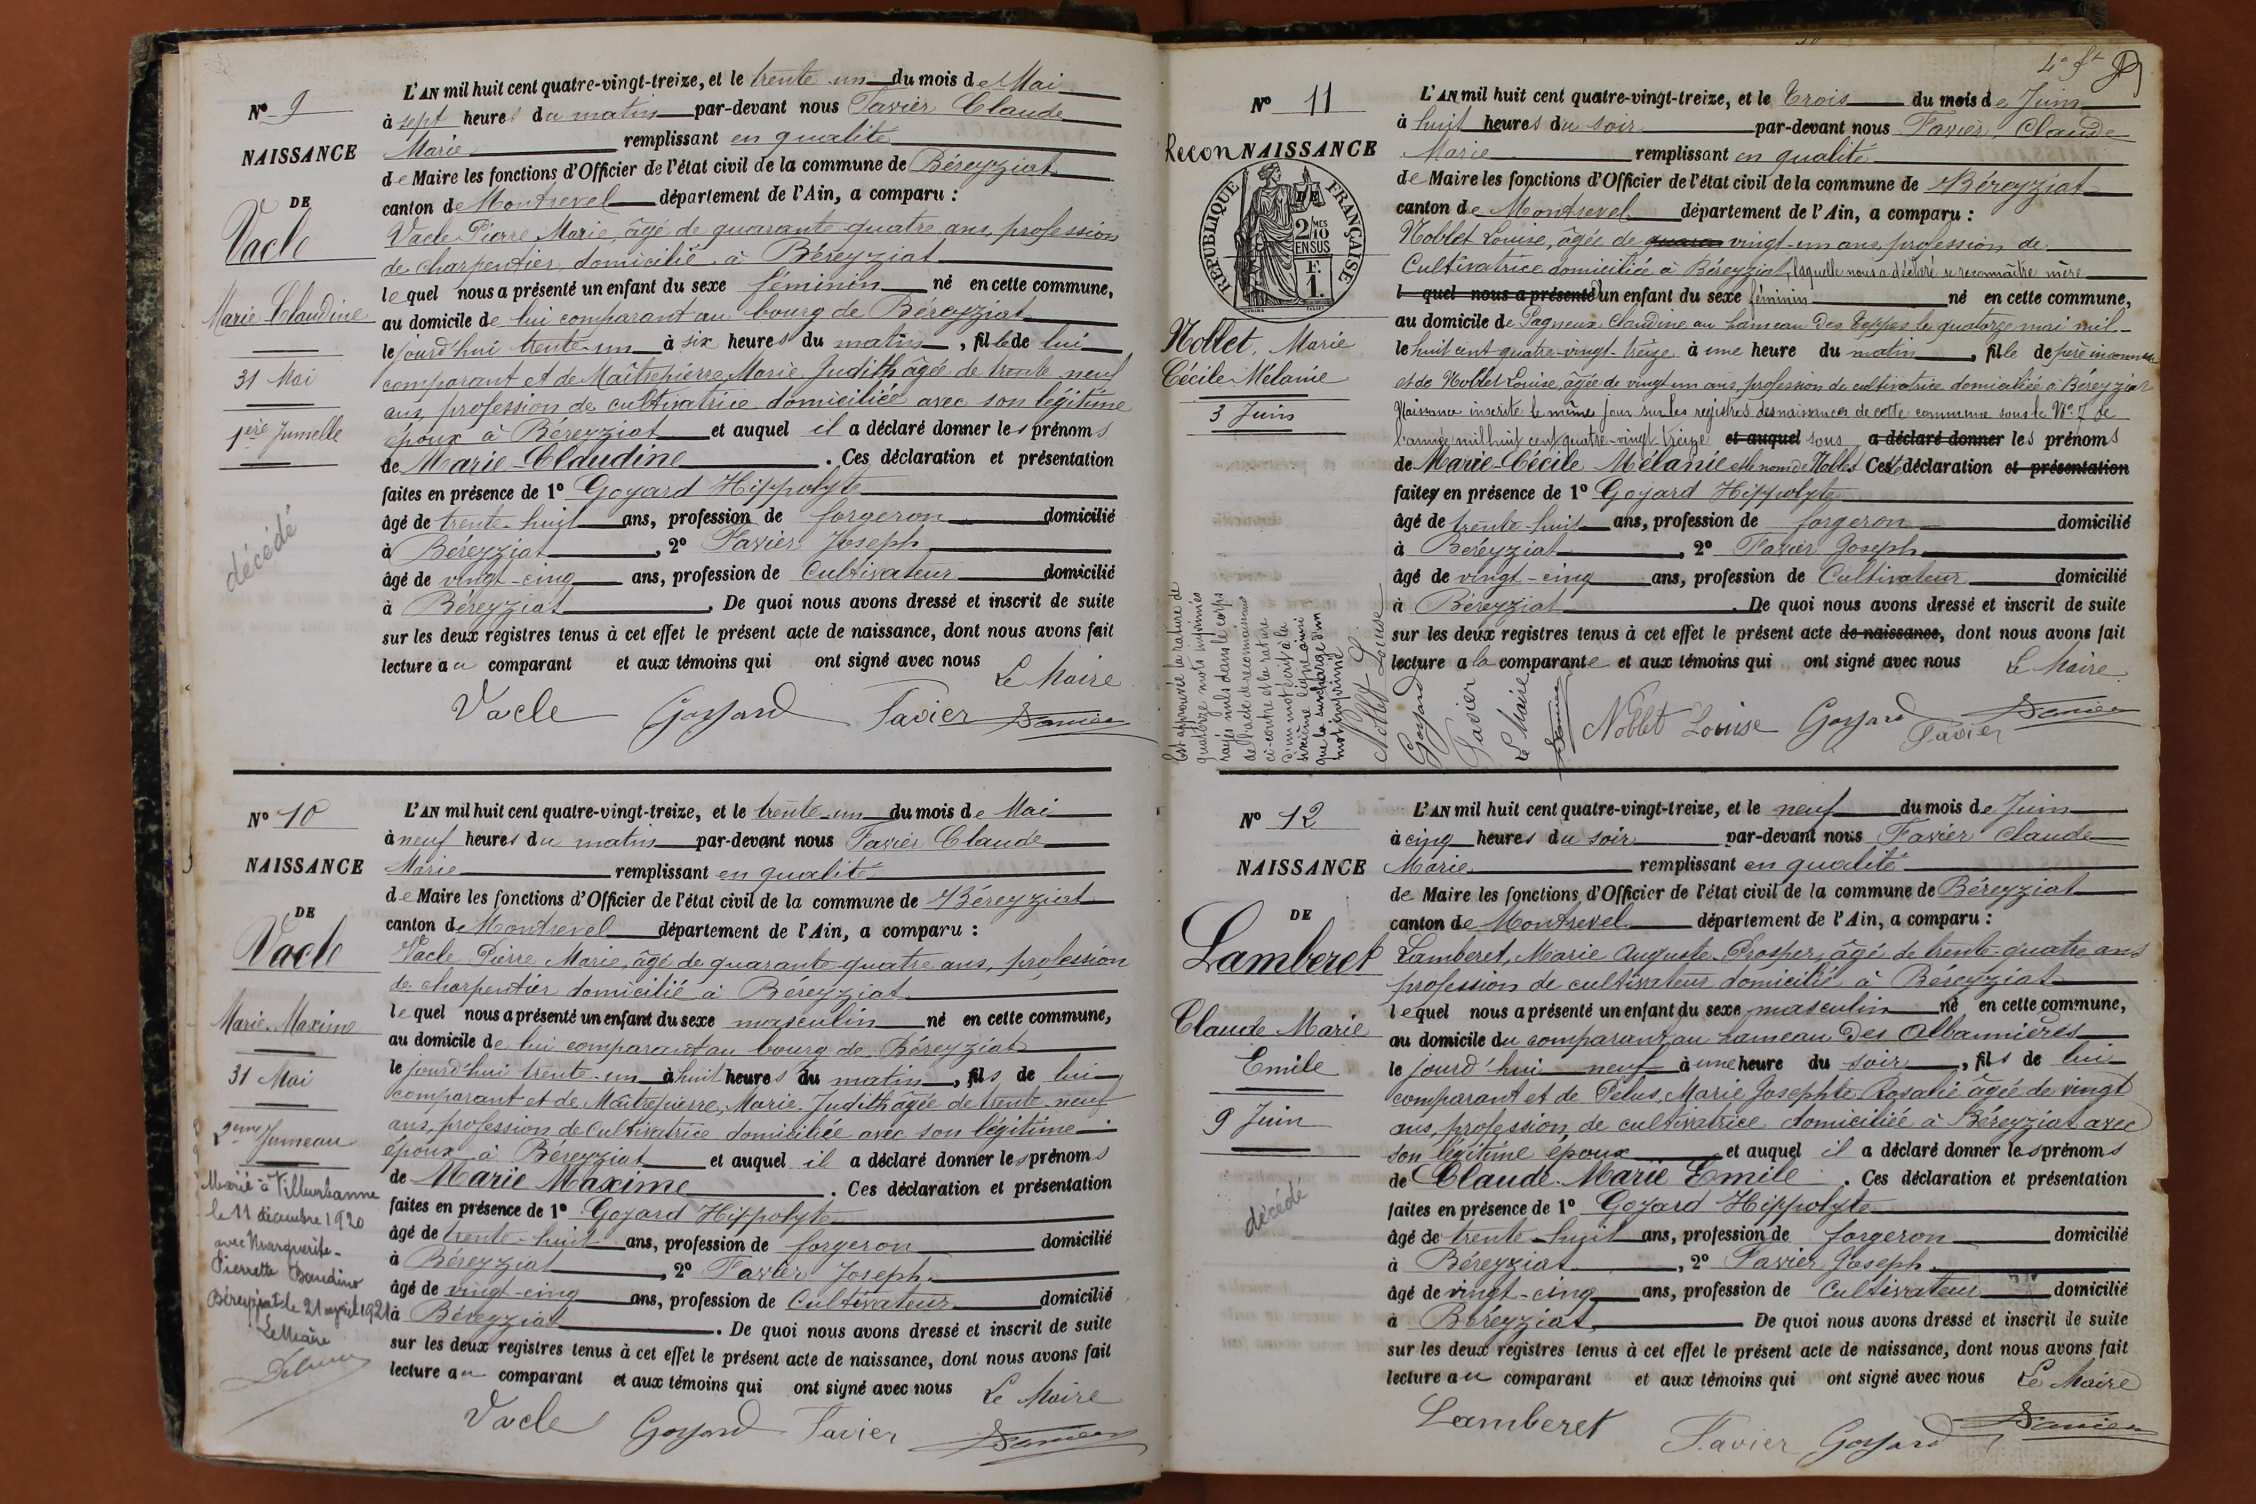 N° 9
NAISSANCE
DE
Vacle
Marie Claudine
31 Mai
1ère Jumelle
décédé
L'AN mil huit cent quatre-vingt-treize, et le trente-un du mois de Mai
à sept heures du matin par-devant nous Favier Claude
Marie remplissant en qualité
de Maire les fonctions d'Officier de l'état civil de la commune de Béreyziat
canton de Montrevel département de l'Ain, a comparu :
Vacle Pierre Marie, âgé de quarante-quatre ans, profession
de charpentier, domicilié à Béreyziat
lequel nous a présenté un enfant du sexe féminin né en cette commune,
au domicile de lui comparant au bourg de Béreyziat
le jourd'hui trente-un à six heures du matin, fille de lui
comparant et de Maîtrepierre Marie Judith âgée de trente neuf
ans, profession de cultivatrice domiciliée avec son légitime
époux à Béreyziat et auquel il a déclaré donner les prénoms
de Marie-Claudine. Ces déclaration et présentation
faites en présence de 1° Goyard Hippolyte
âgé de trente-huit ans, profession de forgeron domicilié
à Béreyziat, 2° Favier Joseph
âgé de vingt-cinq ans, profession de Cultivateur domicilié
à Béreyziat. De quoi nous avons dressé et inscrit de suite
sur les deux registres tenus à cet effet le présent acte de naissance, dont nous avons fait
lecture au comparant et aux témoins qui ont signé avec nous
Le Maire
Vacle Goyard Favier Favier
N° 10
NAISSANCE
DE
Vacle
Marie Maxime
31 Mai
2ème Jumeau
Marié à Villeurbanne
le 11 décembre 1920
avec Marguerite-
Pierrette Baudino
Béreyziat le 21 avril 1921
Le Maire
L'AN mil huit cent quatre-vingt-treize, et le trente-un du mois de Mai
à neuf heures du matin par-devant nous Favier Claude
Marie remplissant en qualité
de Maire les fonctions d'Officier de l'état civil de la commune de Béreyziat
canton de Montrevel département de l'Ain, a comparu :
Vacle Pierre Marie, âgé de quarante-quatre ans, profession
de charpentier domicilié à Béreyziat
lequel nous a présenté un enfant du sexe masculin né en cette commune,
au domicile de lui comparant au bourg de Béreyziat
le jourd'hui trente-un à huit heures du matin, fils de lui
comparant et de Maîtrepierre, Marie Judith âgée de trente neuf
ans, profession de Cultivatrice domiciliée avec son légitime
époux à Béreyziat et auquel il a déclaré donner les prénoms
de Marie Maxime. Ces déclaration et présentation
faites en présence de 1° Goyard Hippolyte
âgé de trente-huit ans, profession de forgeron domicilié
à Béreyziat, 2° Favier Joseph
âgé de vingt-cinq ans, profession de Cultivateur domicilié
à Béreyziat. De quoi nous avons dressé et inscrit de suite
sur les deux registres tenus à cet effet le présent acte de naissance, dont nous avons fait
lecture au comparant et aux témoins qui ont signé avec nous
Le Maire
Vacle Goyard Favier Favier
N° 11
ReconNAISSANCE
RÉPUBLIQUE FRANÇAISE
2/10
EN SUS
F.
1.
Noblet, Marie
Cécile Mélanie
3 Juin
Est approuvée la rature de
quatorze mots imprimés
rayés nuls dans le corps
de l'acte de reconnaissance
ci-contre et la rature
d'un mot écrit à la
sixième ligne ainsi
que la surcharge d'un
mot imprimé
Noblet Louise
Goyard
Favier
Le Maire
Favier
L'AN mil huit cent quatre-vingt-treize, et le Trois du mois de Juin
à huit heures du soir par-devant nous Favier Claude
Marie remplissant en qualité
de Maire les fonctions d'Officier de l'état civil de la commune de Béreyziat
canton de Montrevel département de l'Ain, a comparu :
Noblet Louise, âgée de quaran vingt-un ans, profession de
Cultivatrice domiciliée à Béreyziat, laquelle nous a déclaré se reconnaître mère
l quel nous a présenté d'un enfant du sexe féminin né en cette commune,
au domicile de Pagneux Claudine au hameau Des Teppes le quatorze mai mil-
le huit cent quatre-vingt-treize à une heure du matin, fille de père inconnu
et de Noblet Louise, âgée de vingt un ans, profession de cultivatrice domiciliée à Béreyziat
Naissance inscrite le même jour sur les registres des naissances de cette commune sous le N° 7 de
l'année mil huit cent quatre-vingt-treize et auquel sous a déclaré donner les prénoms
de Marie-Cécile Mélanie et le nom de Noblet Cette déclaration et présentation
faite en présence de 1° Goyard Hippolyte
âgé de trente-huit ans, profession de forgeron domicilié
à Béreyziat, 2° Favier Joseph
âgé de vingt-cinq ans, profession de Cultivateur domicilié
à Béreyziat. De quoi nous avons dressé et inscrit de suite
sur les deux registres tenus à cet effet le présent acte de naissance, dont nous avons fait
lecture a la comparante et aux témoins qui ont signé avec nous
Le Maire
Noblet Louise Goyard Favier Favier
N° 12
NAISSANCE
DE
Lamberet
Claude Marie
Emile
9 Juin
décédé
L'AN mil huit cent quatre-vingt-treize, et le neuf du mois de Juin
à cinq heures du soir par-devant nous Favier Claude
Marie remplissant en qualité
de Maire les fonctions d'Officier de l'état civil de la commune de Béreyziat
canton de Montrevel département de l'Ain, a comparu :
Lamberet, Marie Auguste Prosper, âgé de trente-quatre ans
profession de cultivateur domicilié à Béreyziat
lequel nous a présenté un enfant du sexe masculin né en cette commune,
au domicile du comparant au hameau Des Albannières
le jourd'hui neuf à une heure du soir, fils de lui
comparant et de Pelus Marie Josephte Rosalie âgée de vingt
ans, profession de cultivatrice domiciliée à Béreyziat avec
son légitime époux et auquel il a déclaré donner les prénoms
de Claude Marie Emile. Ces déclaration et présentation
faites en présence de 1° Goyard Hippolyte
âgé de trente-huit ans, profession de forgeron domicilié
à Béreyziat, 2° Favier Joseph
âgé de vingt-cinq ans, profession de Cultivateur domicilié
à Béreyziat De quoi nous avons dressé et inscrit de suite
sur les deux registres tenus à cet effet le présent acte de naissance, dont nous avons fait
lecture au comparant et aux témoins qui ont signé avec nous
Le Maire
Lamberet Favier Goyard Favier